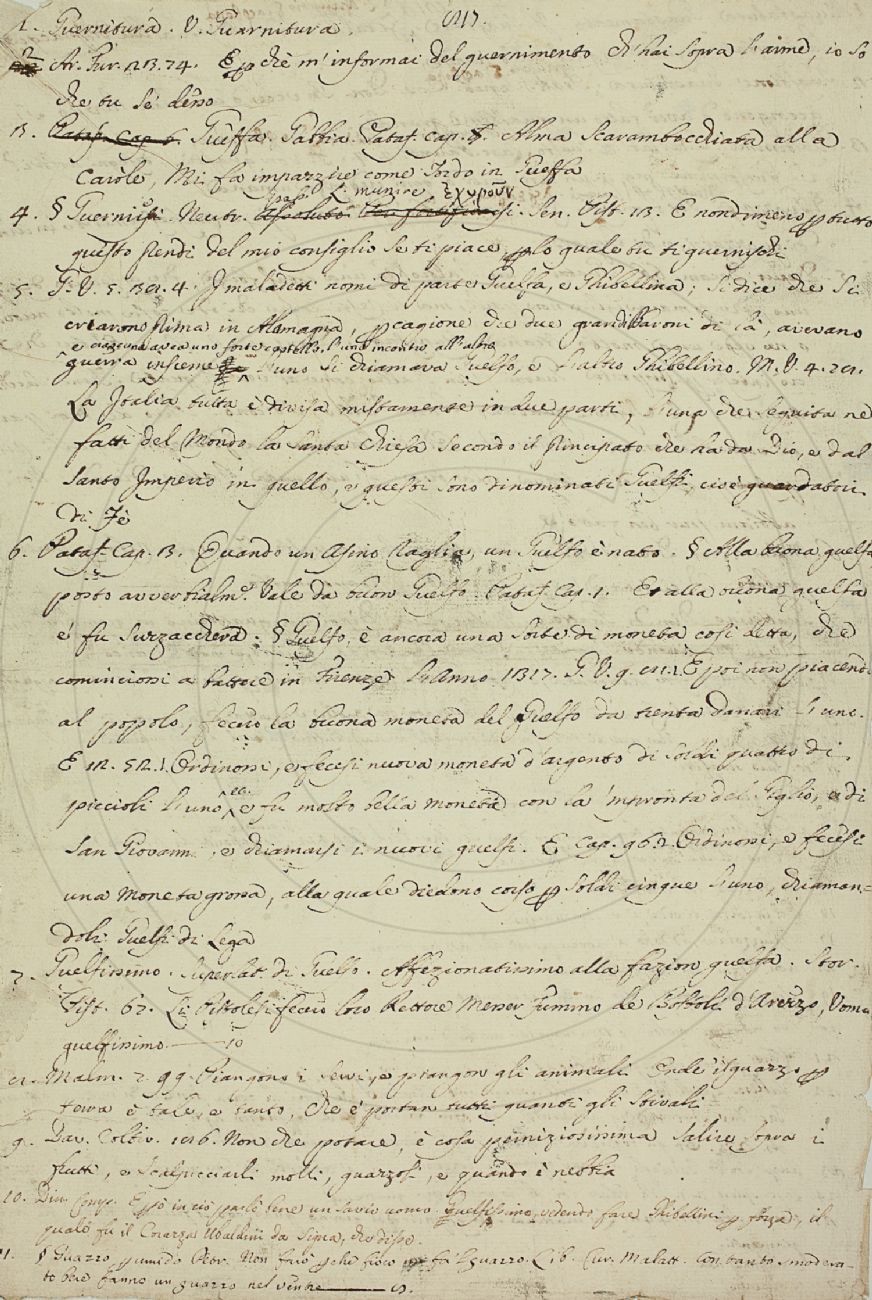 1. Guernitura. V. Guarnitura. 
2. Ar. Fur. 23. 74. E p chè m'informai del guernimento Ch'hai sopra l'arme, io so
che tu se' desso
3. Pataf. cap. 6. Gueffa. Gabbia. Pataf. cap. Alma scarambocchiata alla
Carole, Mi fa impazzire come Tordo in Gueffa
L. munire ἐχυροῦν
4. § Guernirsi. Neutr. Sen. Pist. 13. E nondimeno p tutto
questo prendi del mio consiglio se ti piace, p lo quale tu ti guernischi
5. G. V. 5. 38. 4. I maladetti nomi di parte Guelfa, e Ghibellina; si dice che si
criarono prima in Alamagna, p cagione che due grandi Baroni di là, aveano
e ciascuno avea uno forte castello, l'uno incontro all'altro
guerra insieme l'uno si chiamava Guelfo, e l'altro Ghibellino. M. V. 4. 78.
La Italia tutta è divisa mistamente in due parti, l'una che seguita ne
fatti del Mondo la santa Chiesa secondo il principato che ha da Dio, e dal
Santo Imperio in quello, e questi sono dinominati Guelfi, cioè guardatori
di Fè
6. Pataf. Cap. 3. Quando un Asino raglia, un Guelfo è nato. § Alla buona guelfa
posto avverbialm. Vale da buon Guelfo. Pataf. Cap. 1. Et alla buona guelfa
e' fu surzaccherà. § Guelfo, è ancora una sorte di moneta così detta, che
cominciossi a battere in Firenze l'Anno 1317. G. V. 9. E poi non piacendo
al popolo, fecero la buona moneta del Guelfo da trenta danari l'uno.
E 12. 52. 1. Ordinossi, e fecesi nuova moneta d'argento di soldi quattro di
piccioli l'uno, ec. e fu molto bella moneta con la 'mpronta del Giglio, e di
San Giovanni, e chiamarsi i nuovi guelfi. E Cap. 96. 2. Ordinossi, e fecesi
una moneta grossa, alla quale diedono corso p soldi cinque l'uno, chiaman=
doli Guelfi di Lega
7. Guelfissimo. Superlat. di Guelfo. Affezionatissimo alla fazion guelfa. Stor.
Pist. 67. Li Pistolesi feciro loro Rettore Messer Fumino de' Bostoli d'Arezzo, Uomo
guelfissimo —— 10
8. Malm. 7. 99. Piangono i servi, e piangon gli animali Ende 'l guazzo p
terra è tale, e tanto, Che e' portan tutti quanti gli stivali
9. Dav. Coltiv. 186. Non che potare, è cosa perniziosissima salire sopra i
frutti, e scalpicciarli molli, guazzosi, e quando è nebbia
10. Din. Comp. E però in ciò parlò bene un savio uomo Guelfissimo, vedendo fare Ghibellini p forza, il
quale fu il Corazza Ubaldini da Signa, che disse.
11. § Guazzo p umido Petr. Non farò p chè fioco Lib. Cur. Malatt. Con tanto smodera-
to bere fanno un guazzo nel ventre ——